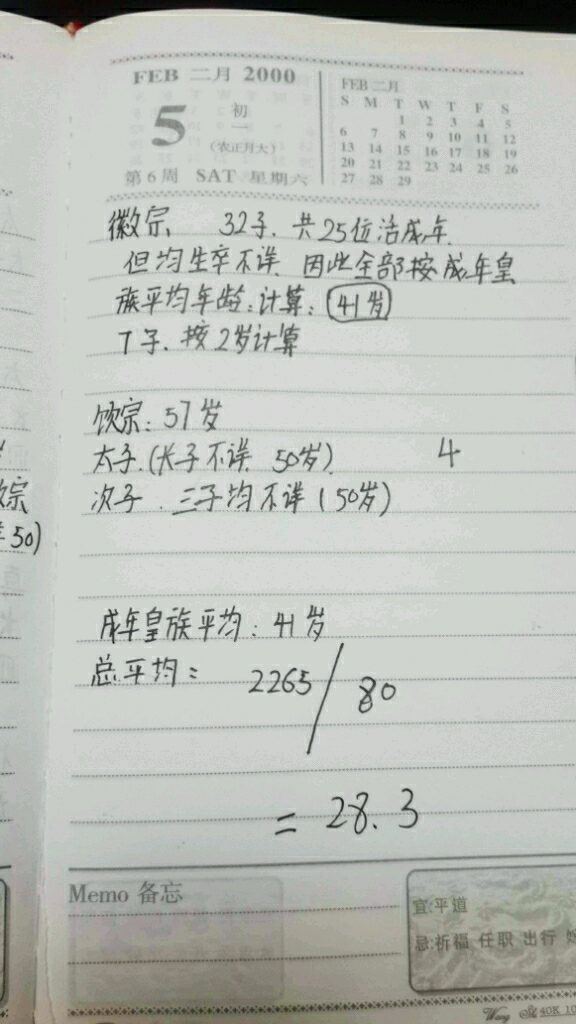 FEB 二月 2000
5
初一
(农正月大)
第6周 SAT 星期六
FEB 二月
S M T W T F S
1 2 3 4 5
6 7 8 9 10 11 12
13 14 15 16 17 18 19
20 21 22 23 24 25 26
27 28 29
徽宗 32子. 共25位活成年.
但均生卒不详. 因此全部按成年皇
族平均年龄:计算: 41岁
7子. 按2岁计算
钦宗: 57岁
太子.(长子不详. 50岁). 4
次子. 三子均不详(50岁)
宗
50)
成年皇族平均: 41岁
总平均: 2265/80
= 28.3
Memo 备忘
宜:平道
忌:祈福 任职 出行
40K 10